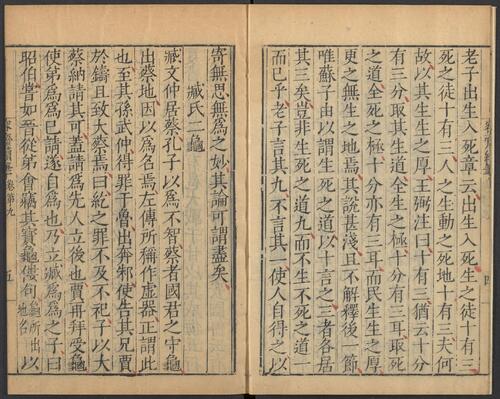 老子出生入死章云出生入死生之徒十有三
死之徒十有三人之生動之死地十有三夫何
故以其生生之厚王弼注曰十有三猶云十分
有三分取其生道全生之極十分有三耳取死
之道全死之極十分亦有三耳而民生生之厚
更之無生之地焉其說甚淺且不解釋後一節
唯蘇子由以謂生死之道以十言之三者各居
其三矣豈非生死之道九而不生不死之道一
而已乎老子言其九不言其一使人自得之以
寄無思無爲之妙其論可謂盡矣
臧氏二龜
臧文仲居蔡孔子以爲不智蔡者國君之守龜
出蔡地因以爲名焉左傳所稱作虛器正謂此
也至其孫武仲得罪于魯出奔邾使告其兄賈
於鑄且致大蔡焉曰紇之罪不及不祀子以大
蔡納請其可蓋請爲先人立後也賈再拜受龜
使弟爲爲己請遂自爲也乃立臧爲爲之子曰
昭伯嘗如晉從弟會竊其寶龜僂句龜所出地名以
容齋續筆卷第九
五
四